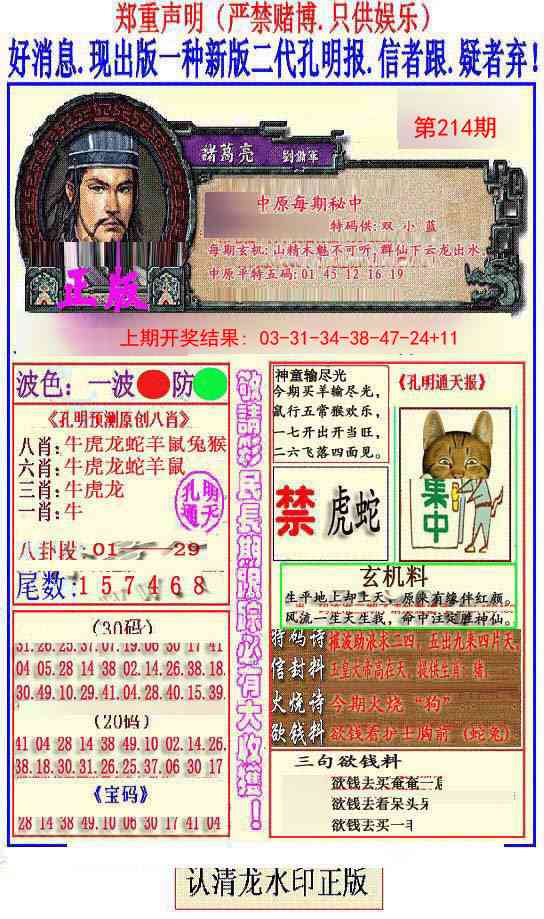 郑重声明（严禁赌博.只供娱乐）
好消息.现出版一种新版二代孔明报.信者跟.疑者弃!
第214期
諸葛亮
中原每期秘中
特码供:双 小 蓝
每期玄机:山精木魅不可听,群仙下云龙出水
中原平特五码:01 45 12 16 19
正版
上期开奖结果: 03-31-34-38-47-24+11
波色：一波 防
《孔明预测原创八肖》
八肖:牛虎龙蛇羊鼠兔猴
六肖:牛虎龙蛇羊鼠
三肖:牛虎龙
一肖:牛
孔明通天
八卦段:01 29
尾数:1 5 7 4 6 8
(30码)
31.26.25.37.07.19.06 30 17 41
04 05.28 14 38 02.14.26.38.18.
30.49.10.29.41.04.28.40.15.39
(20码)
41 04 28 14 38 49.10 02.14.26.
38.18.30.31.26.25.37.06 30 17
《宝码》
28 14 38 49.10 06 30 17 41 04
敬請彩民長期跟踪必有大收獲！
神童输尽光
今期买羊输尽光,
鼠行五常猴欢乐,
一七开出开当旺,
二六飞落四面见。
《孔明通天报》
禁
虎蛇
集中
玄机料
生平地上却上天,原来有缘伴红颜。
风流一生天生我,命中注定胜神仙。
特码诗
摧波助液求二四,五出九来四片天,
信封料
玉皇大帝高在天,提供生肖:猪,
火烧诗
今期火烧“狗”
欲钱料
欲钱看护士胸前（蛇兔）
三句欲钱料
欲钱去买奄奄一
欲钱去看呆头
欲钱去买一
认清龙水印正版